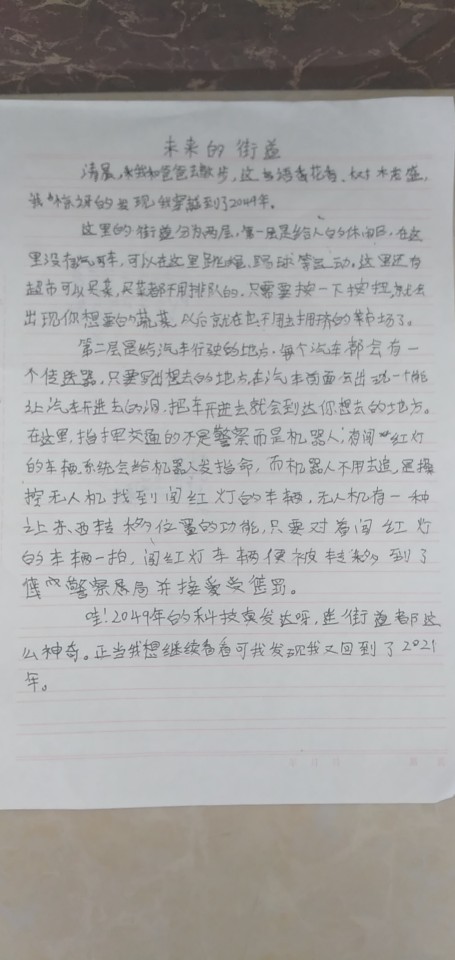 未来的街道
清晨,我和爸爸去散步,这鸟语花香、树木茂盛,
我惊讶的发现我穿越到了2049年。
这里的街道分为两层,第一层是给人们休闲的,在这
里没有汽车,可以在这里跳绳、踢球等运动。这里还有
超市可以买菜,买菜都不用排队的,只需要按一下按扭,就会
出现你想要的蔬菜,以后就在也不用去拥挤的菜市场了。
第二层是给汽车行驶的地方,每个汽车都会有一
个传送器,只要写出想去的地方,在汽车前面会出现一个能
让汽车开进去的洞,把车开进去就会到达你想去的地方。
在这里,指挥交通的不是警察而是机器人,有闯红灯
的车辆,系统会给机器人发指命,而机器人不用去追,是操
控无人机找到闯红灯的车辆,无人机有一种
让东西转移位置的功能,只要对着闯红灯
的车辆一拍,闯红灯车辆便被转移到了
警察局并接受惩罚。
哇!2049年的科技真发达呀,连街道都这
么神奇。正当我想继续看看可我发现我又回到了2021
年。